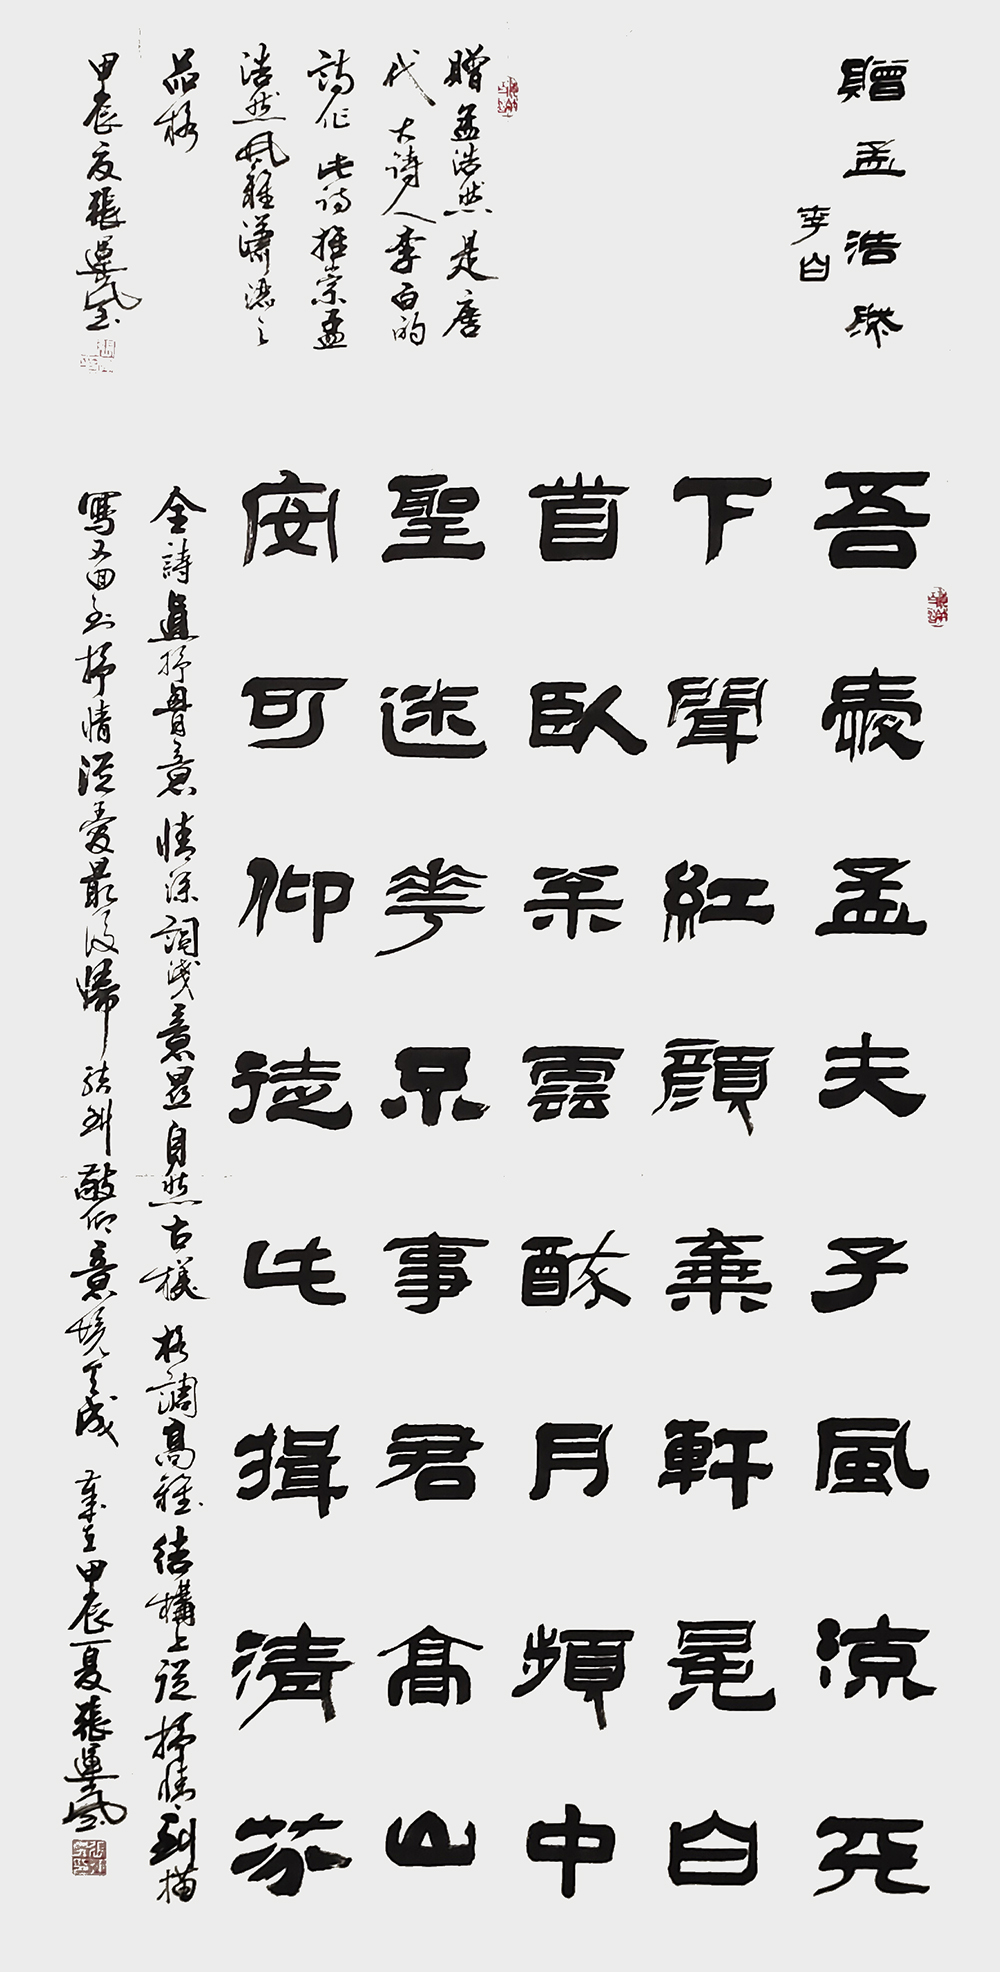 贈孟浩然
李白
吾愛孟夫子風流天
下聞紅顏棄軒冕白
首臥松雲醉月頻中
聖迷花不事君高山
安可仰徒此揖清芬
贈孟浩然是唐
代大詩人李白的
詩作此詩推崇孟
浩然風雅瀟灑之
品格
甲辰夏張運
全詩直抒胷意情深詞淺意顯自然古樸格調高雅結構上從抒情到描
寫又回到抒情從愛最後歸結到敬仰意境天成歲在甲辰夏張運